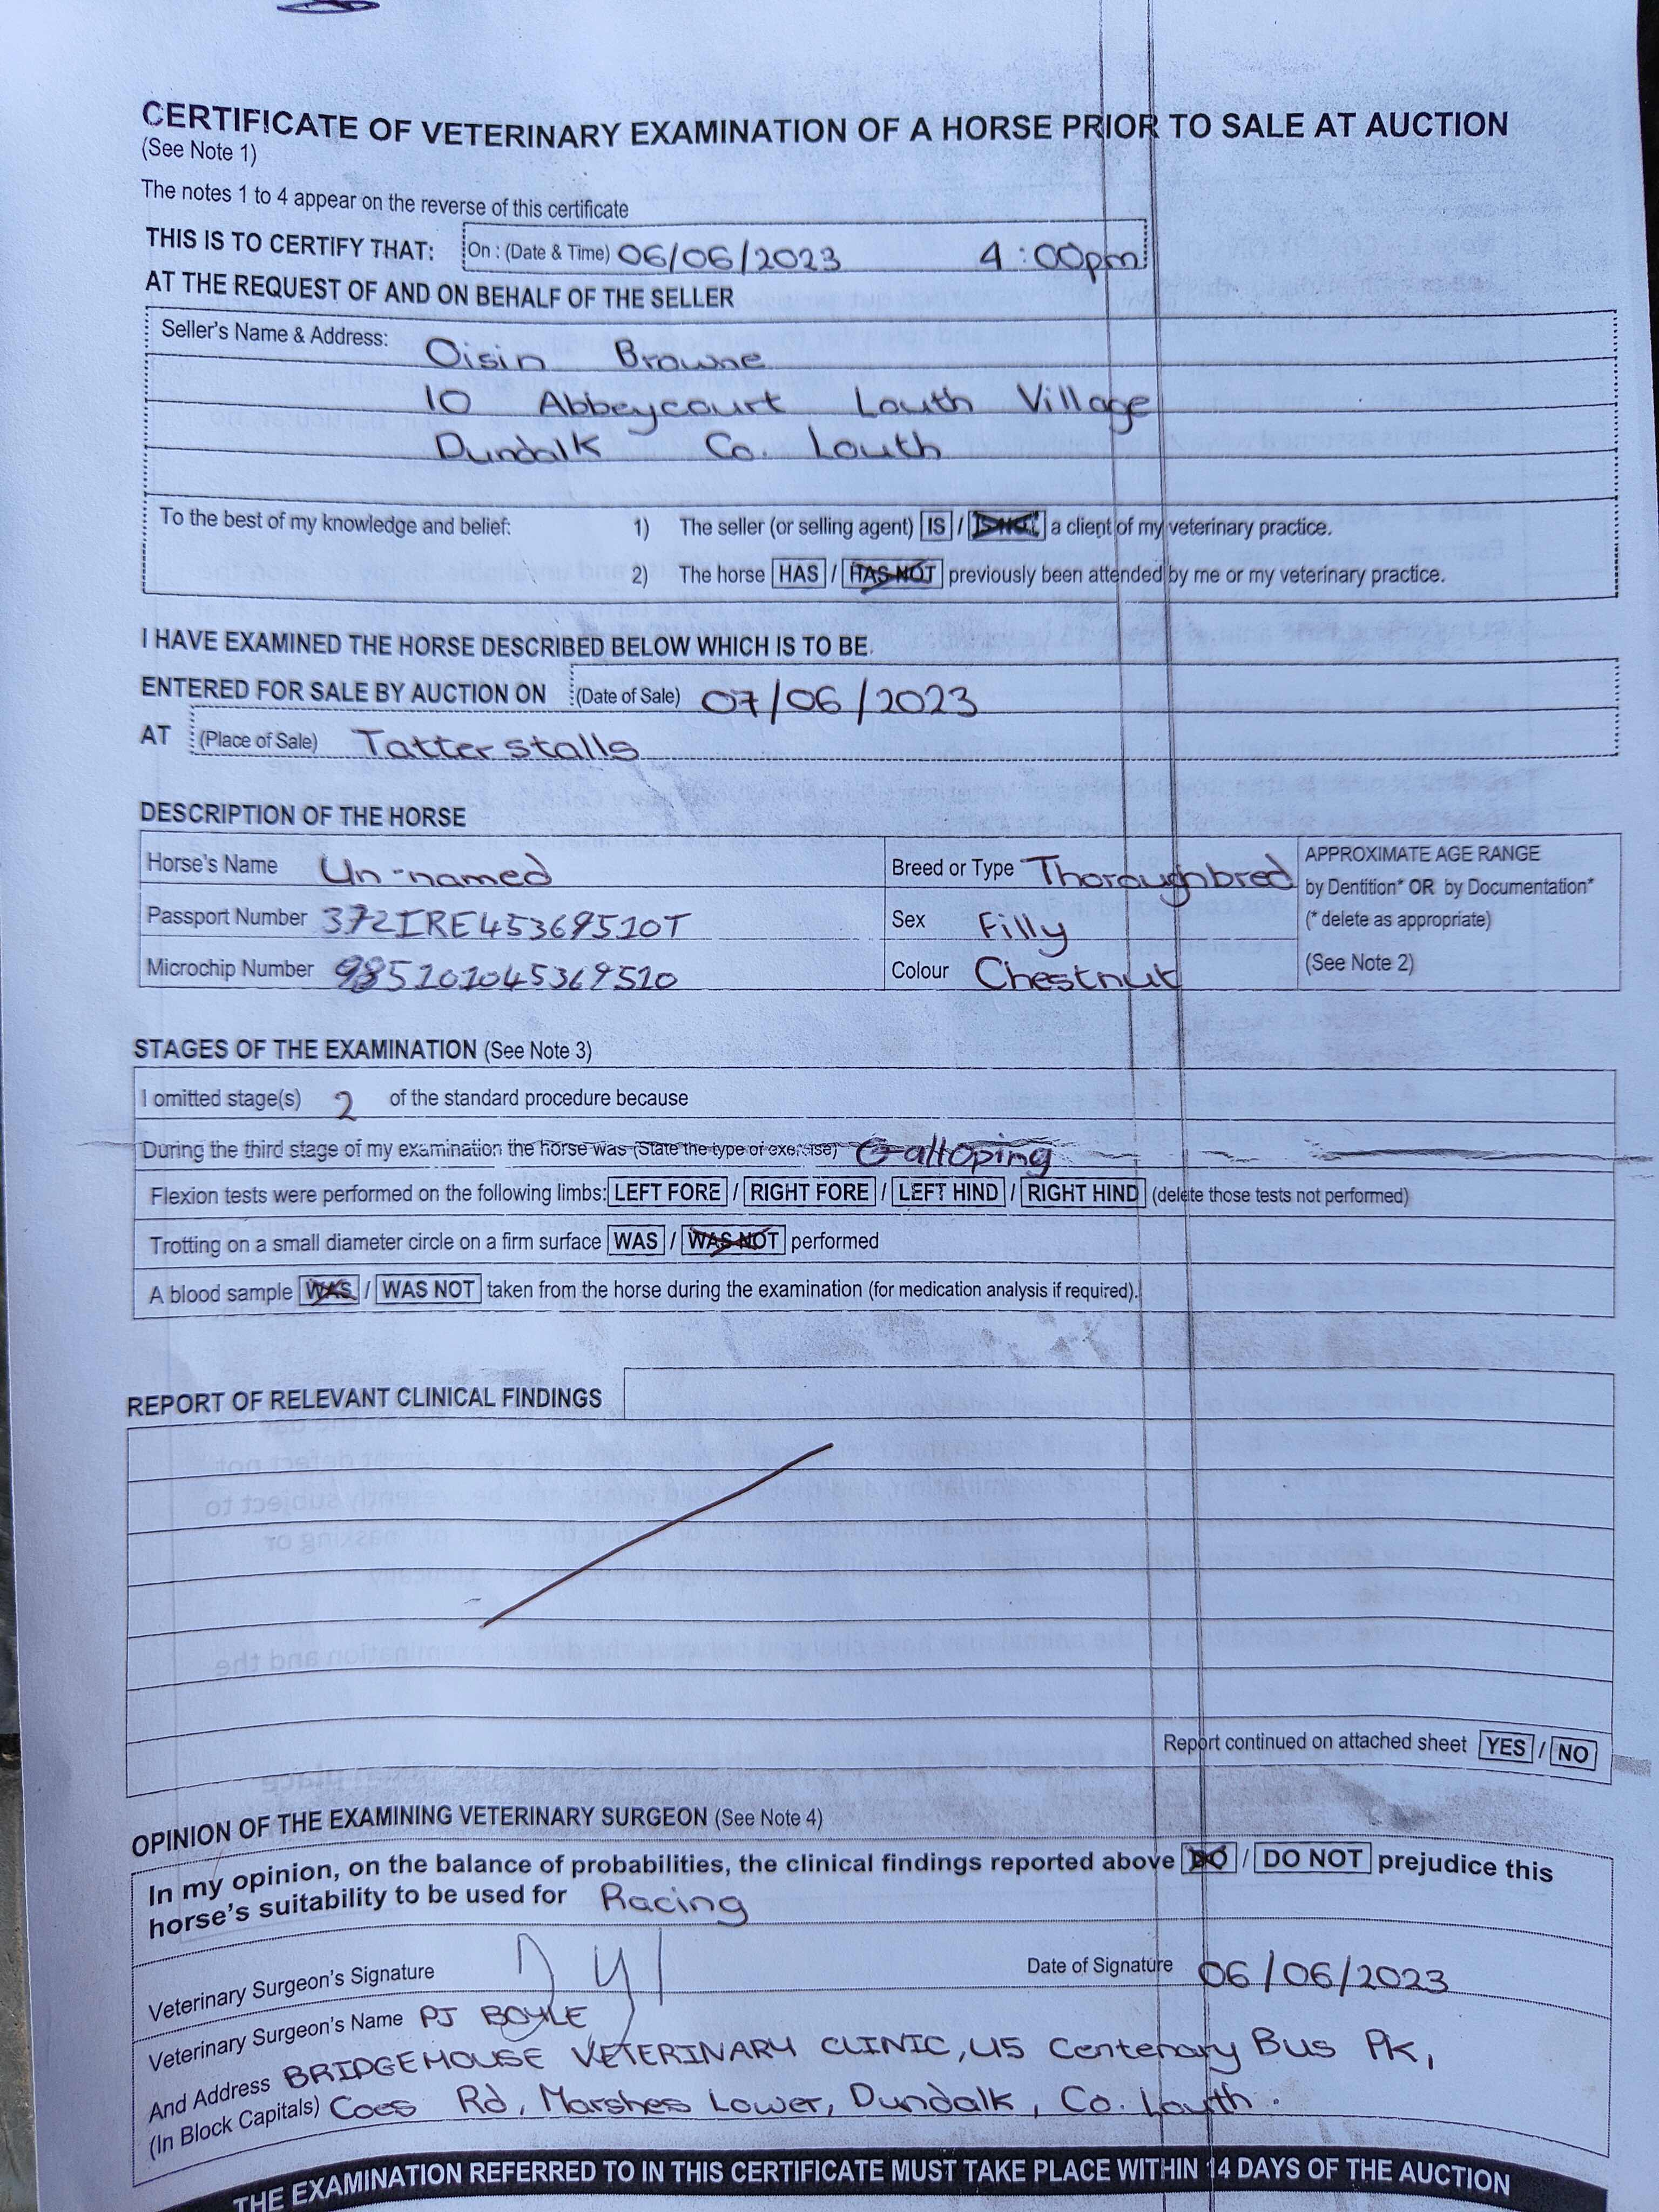 CERTIFICATE OF VETERINARY EXAMINATION OF A HORSE PRIOR TO SALE AT AUCTION
(See Note 1)
The notes 1 to 4 appear on the reverse of this certificate
THIS IS TO CERTIFY THAT: On : (Date & Time) 06/06/2023 4:00pm
AT THE REQUEST OF AND ON BEHALF OF THE SELLER
Seller's Name & Address: Oisin Browne
10 Abbeycourt Louth Village
Dundalk Co. Louth
To the best of my knowledge and belief: 1) The seller (or selling agent) IS / IS NOT a client of my veterinary practice.
2) The horse HAS / HAS NOT previously been attended by me or my veterinary practice.
I HAVE EXAMINED THE HORSE DESCRIBED BELOW WHICH IS TO BE.
ENTERED FOR SALE BY AUCTION ON (Date of Sale) 07/06/2023
AT (Place of Sale) Tatterstalls
DESCRIPTION OF THE HORSE
Horse's Name Un-named Breed or Type Thoroughbred APPROXIMATE AGE RANGE
by Dentition* OR by Documentation*
Passport Number 372IRE45369510T Sex Filly (* delete as appropriate)
Microchip Number 985101045369510 Colour Chestnut (See Note 2)
STAGES OF THE EXAMINATION (See Note 3)
I omitted stage(s) 2 of the standard procedure because
During the third stage of my examination the horse was (State the type of exercise) Galloping
Flexion tests were performed on the following limbs: LEFT FORE / RIGHT FORE / LEFT HIND / RIGHT HIND (delete those tests not performed)
Trotting on a small diameter circle on a firm surface WAS / WAS NOT performed
A blood sample WAS / WAS NOT taken from the horse during the examination (for medication analysis if required).
REPORT OF RELEVANT CLINICAL FINDINGS
Report continued on attached sheet YES / NO
OPINION OF THE EXAMINING VETERINARY SURGEON (See Note 4)
In my opinion, on the balance of probabilities, the clinical findings reported above DO / DO NOT prejudice this
horse's suitability to be used for Racing
Veterinary Surgeon's Signature Date of Signature 06/06/2023
Veterinary Surgeon's Name PJ BOYLE
And Address BRIDGEHOUSE VETERINARY CLINIC, U5 Centenary Bus Pk,
(In Block Capitals) Coes Rd, Marshes Lower, Dundalk, Co. Louth.
THE EXAMINATION REFERRED TO IN THIS CERTIFICATE MUST TAKE PLACE WITHIN 14 DAYS OF THE AUCTION